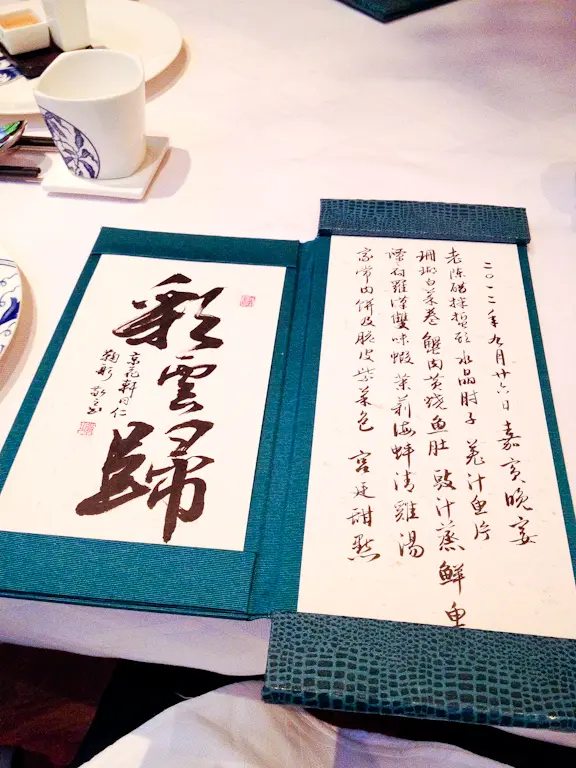 二〇一二年九月廿六日 嘉賓晚宴
老陳醋拌蜇頭 水晶肘子 汁魚片
珊瑚白菜卷 蟹肉黃燒魚肚 豉汁蒸鮮魚
羅漢雙味蝦 茉莉海蚌清雞湯
家常肉餅及脆皮紫菜包 宮廷甜點
彩雲歸
京花軒同仁
鞠躬 敬書